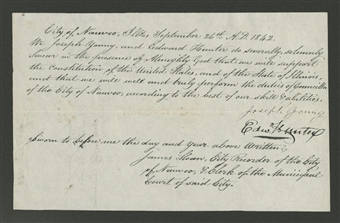 City of Nauvoo, Ills, September 24th A.D. 1842.
We Joseph Young, and Edward Hunter do severally, solemnly
Swear in the presence of Almighty God that we will support
the Constitution of the United States, and of the State of Illinois,
and that we will well and truly perform the duties of Councillors
of the City of Nauvoo, according to the best of our skill & abilities.
Joseph Young
Edw Hunter
Sworn to before me the day and year above written
James Sloan, City Recorder of the City
of Nauvoo, & Clerk of the Municipal
Court of said City.